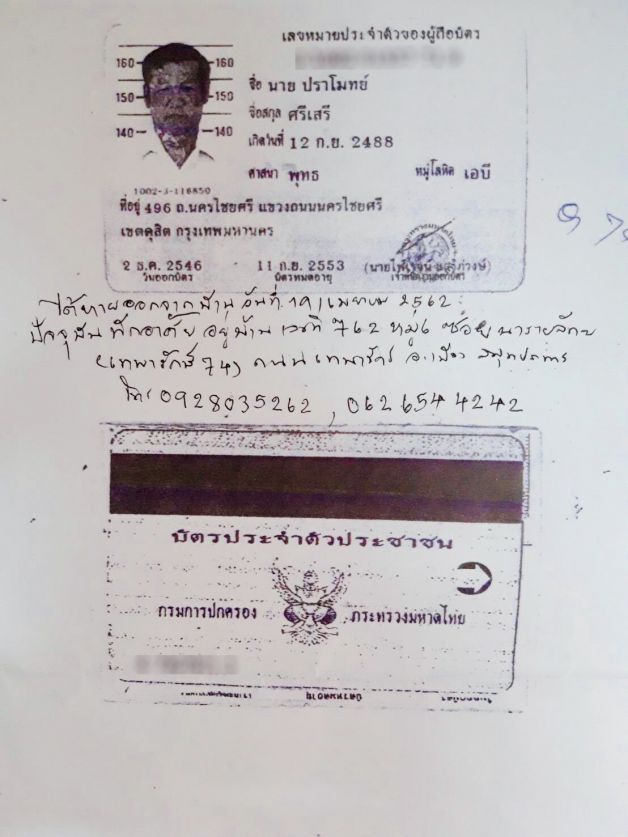 เลขหมายประจำตัวของผู้ถือบัตร
160 160
ชื่อ นาย ปราโมทย์
150 150
ชื่อสกุล ศรีเสรี
140 140
เกิดวันที่ 12 ก.ย. 2488
ศาสนา พุทธ หมู่โลหิต เอบี
1002-3-116850
ที่อยู่ 496 ถ.นครไชยศรี แขวงถนนนครไชยศรี
เขตดุสิต กรุงเทพมหานคร
2 ธ.ค. 2546 11 ก.ย. 2553
วันออกบัตร บัตรหมดอายุ เจ้าพนักงานออกบัตร
ได้หายออกจากบ้าน วันที่ 19 เมษายน 2562
ปัจจุบัน พักอาศัย อยู่บ้าน เลขที่ 762 หมู่6 ซอย
(เทพารักษ์ 74) ถนน เทพารักษ์ อ.เมือง สมุทรปราการ
โทร 0928035262 , 062 654 4242
บัตรประจำตัวประชาชน
กรมการปกครอง กระทรวงมหาดไทย